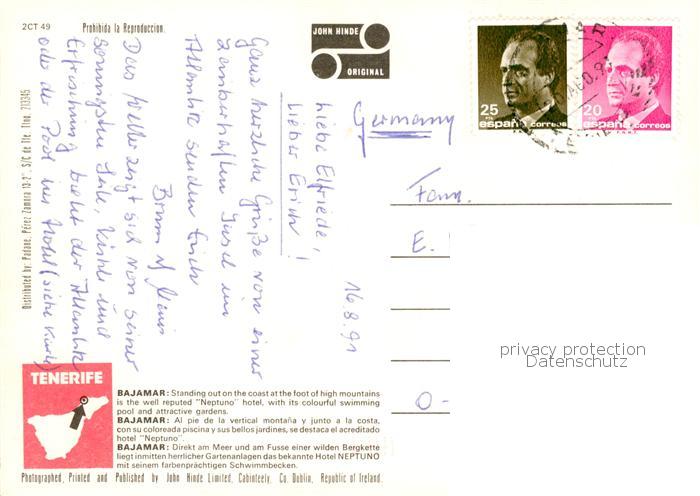 2CT 49
Prohibida la Reproduccion.
JOHN HINDE
ORIGINAL
25
PTA
españa correos
20
PTA
españa correos
F.N.M.T.
16.8.91
Liebe Elfriede,
lieber Erich!
Ganz herzliche Grüße von einer
zauberhaften Insel im
Atlantik senden Euch
Das Wetter zeigt sich von seiner
sonnigsten Seite, Kühle und
Erfrischung bietet der Atlantik
oder der Pool des Hotel (siehe Karte)
Germany
Fam.
E.
O-
privacy protection
Datenschutz
Distributed by: Padane. Pérez Zamora 13-2°. S/C de Tfe. Tfno. 213345
TENERIFE
BAJAMAR: Standing out on the coast at the foot of high mountains
is the well reputed "Neptuno" hotel, with its colourful swimming
pool and attractive gardens.
BAJAMAR: Al pie de la vertical montaña y junto a la costa,
con su coloreada piscina y sus bellos jardines, se destaca el acreditado
hotel "Neptuno".
BAJAMAR: Direkt am Meer und am Fusse einer wilden Bergkette
liegt inmitten herrlicher Gartenanlagen das bekannte Hotel NEPTUNO
mit seinem farbenprächtigen Schwimmbecken.
Photographed, Printed and Published by John Hinde Limited, Cabinteely, Co. Dublin, Republic of Ireland.